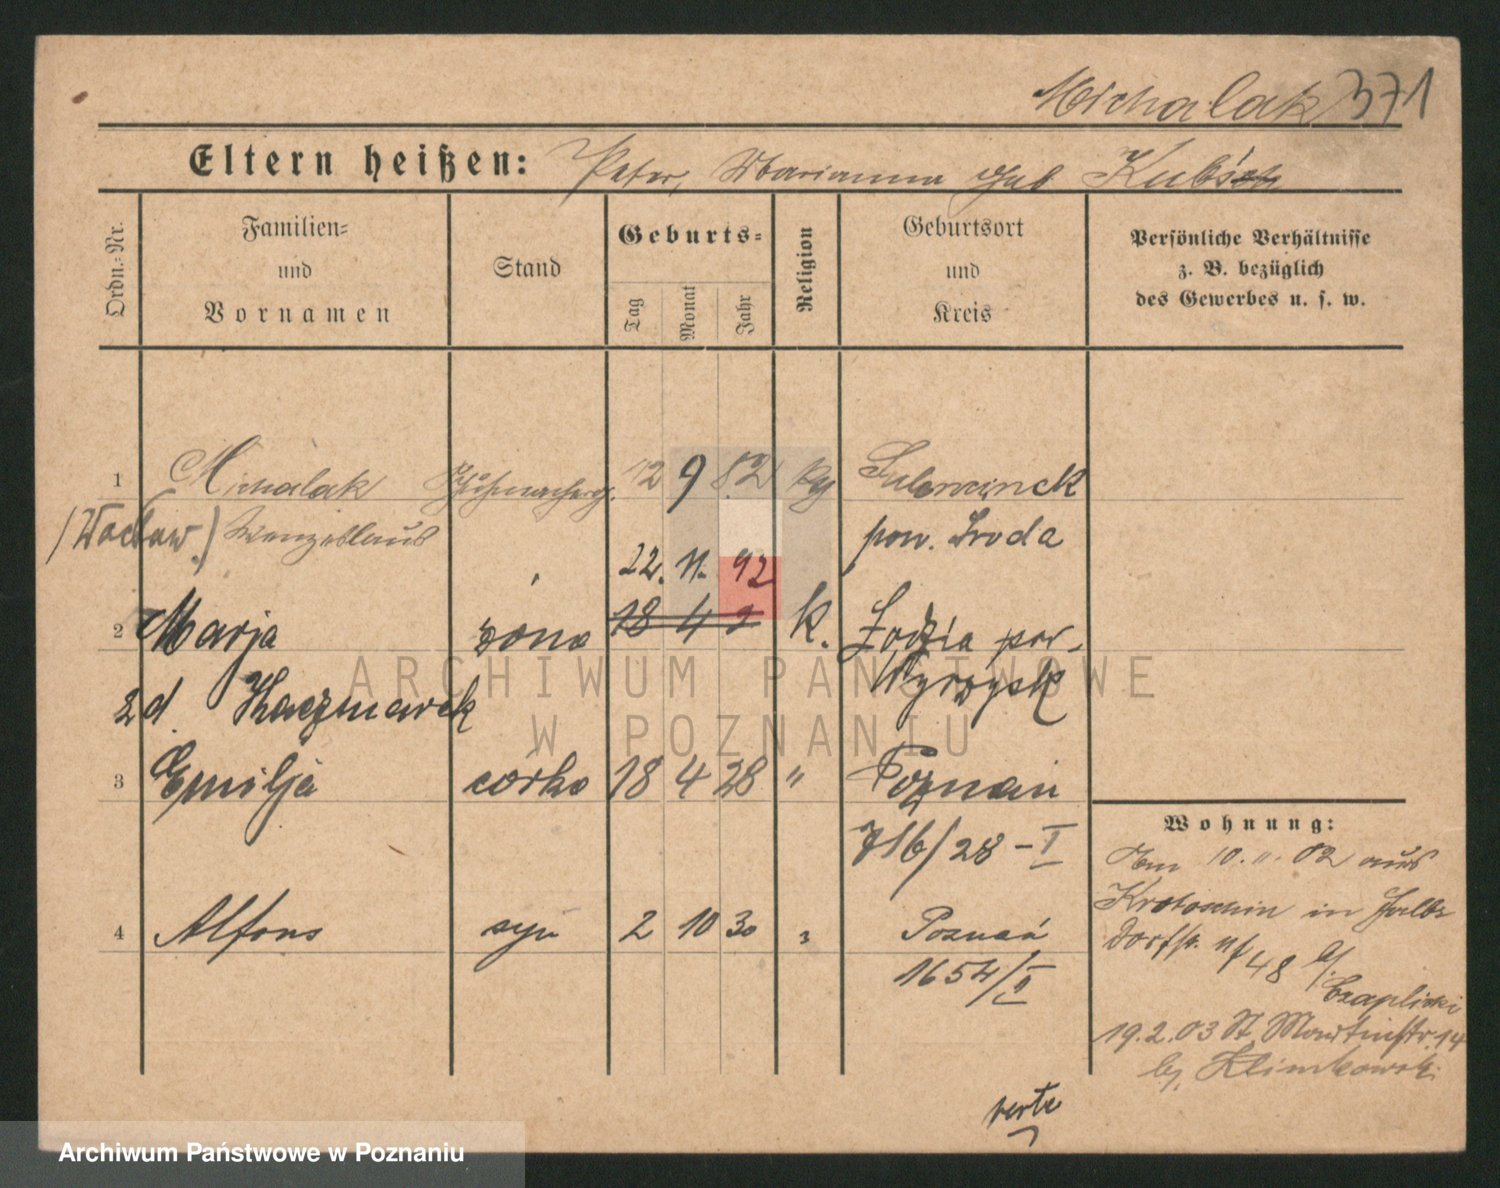 Michalak 371
Eltern heißen: Peter, Marianna geb Kubś
Ordn.=Nr.
Familien=
und
Vornamen
Stand
Geburts=
Tag
Monat
Jahr
Religion
Geburtsort
und
Kreis
Persönliche Verhältnisse
z. B. bezüglich
des Gewerbes u. s. w.
1 Michalak 12 9 82
(Wacław.) Wenzeslaus pow. Środa
22. 11. 92
2 Marja żona 18 4 k.
Wyrzysk
ARCHIWUM PAŃSTWOWE
W POZNANIU
2d. Kaczmarek
3 Emilja córka 18 4 28 " Poznań
716/28 - I
4 Alfons syn 2 10 30 " Poznań
1654/II
Wohnung:
Am 10. 11. 02 aus
Krotoschin in Halb
dorfstr.
48 b/
Czaplicki
19.2.03 St. Martinstr. 14
by. Klimkowski
verte
Archiwum Państwowe w Poznaniu